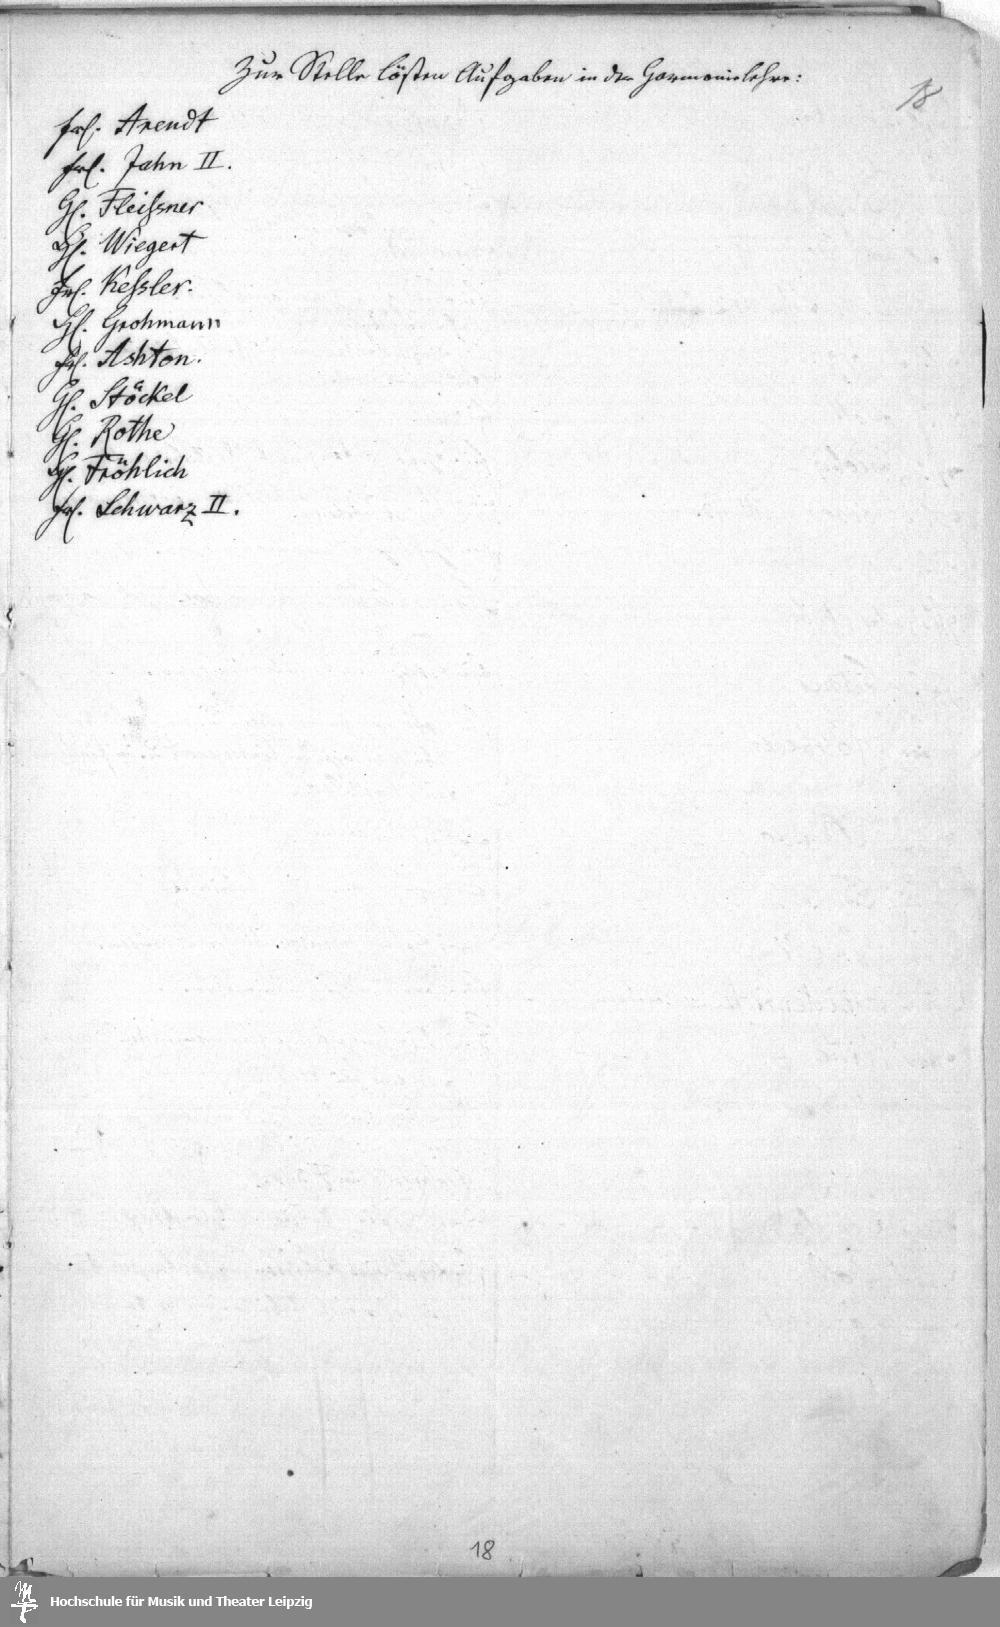 Zur Stelle lösten Aufgaben in der Harmonielehre:
18
Frl. Arendt
Frl. Jahn II.
H. Fleißner
H. Wiegert
Frl. Keßler.
H. Grohmann
Frl. Ashton.
H. Stöckel
H. Rothe
H. Fröhlich
Frl. Schwarz II.
18
Hochschule für Musik und Theater Leipzig